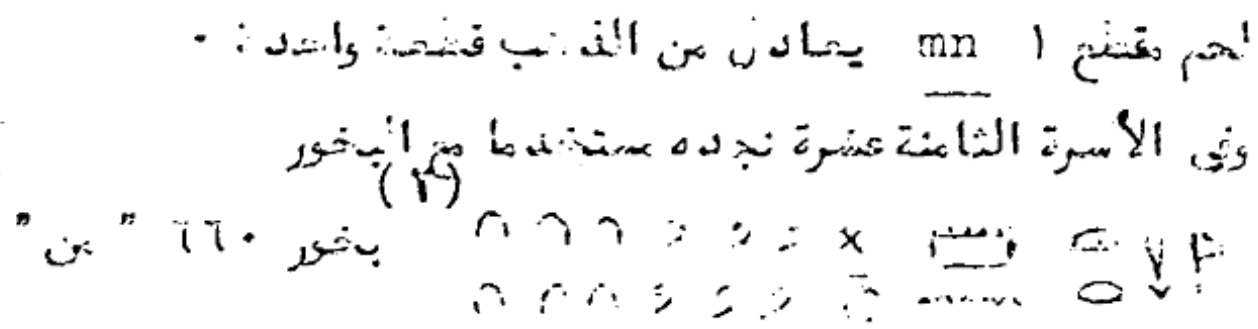 لحم مقطع ١ mn يعادل من الذهب قطعة واحدة .
وفى الأسرة الثامنة عشرة نجده مستخدما مع البخور
(٢) بخور ٦٦٠ " من "